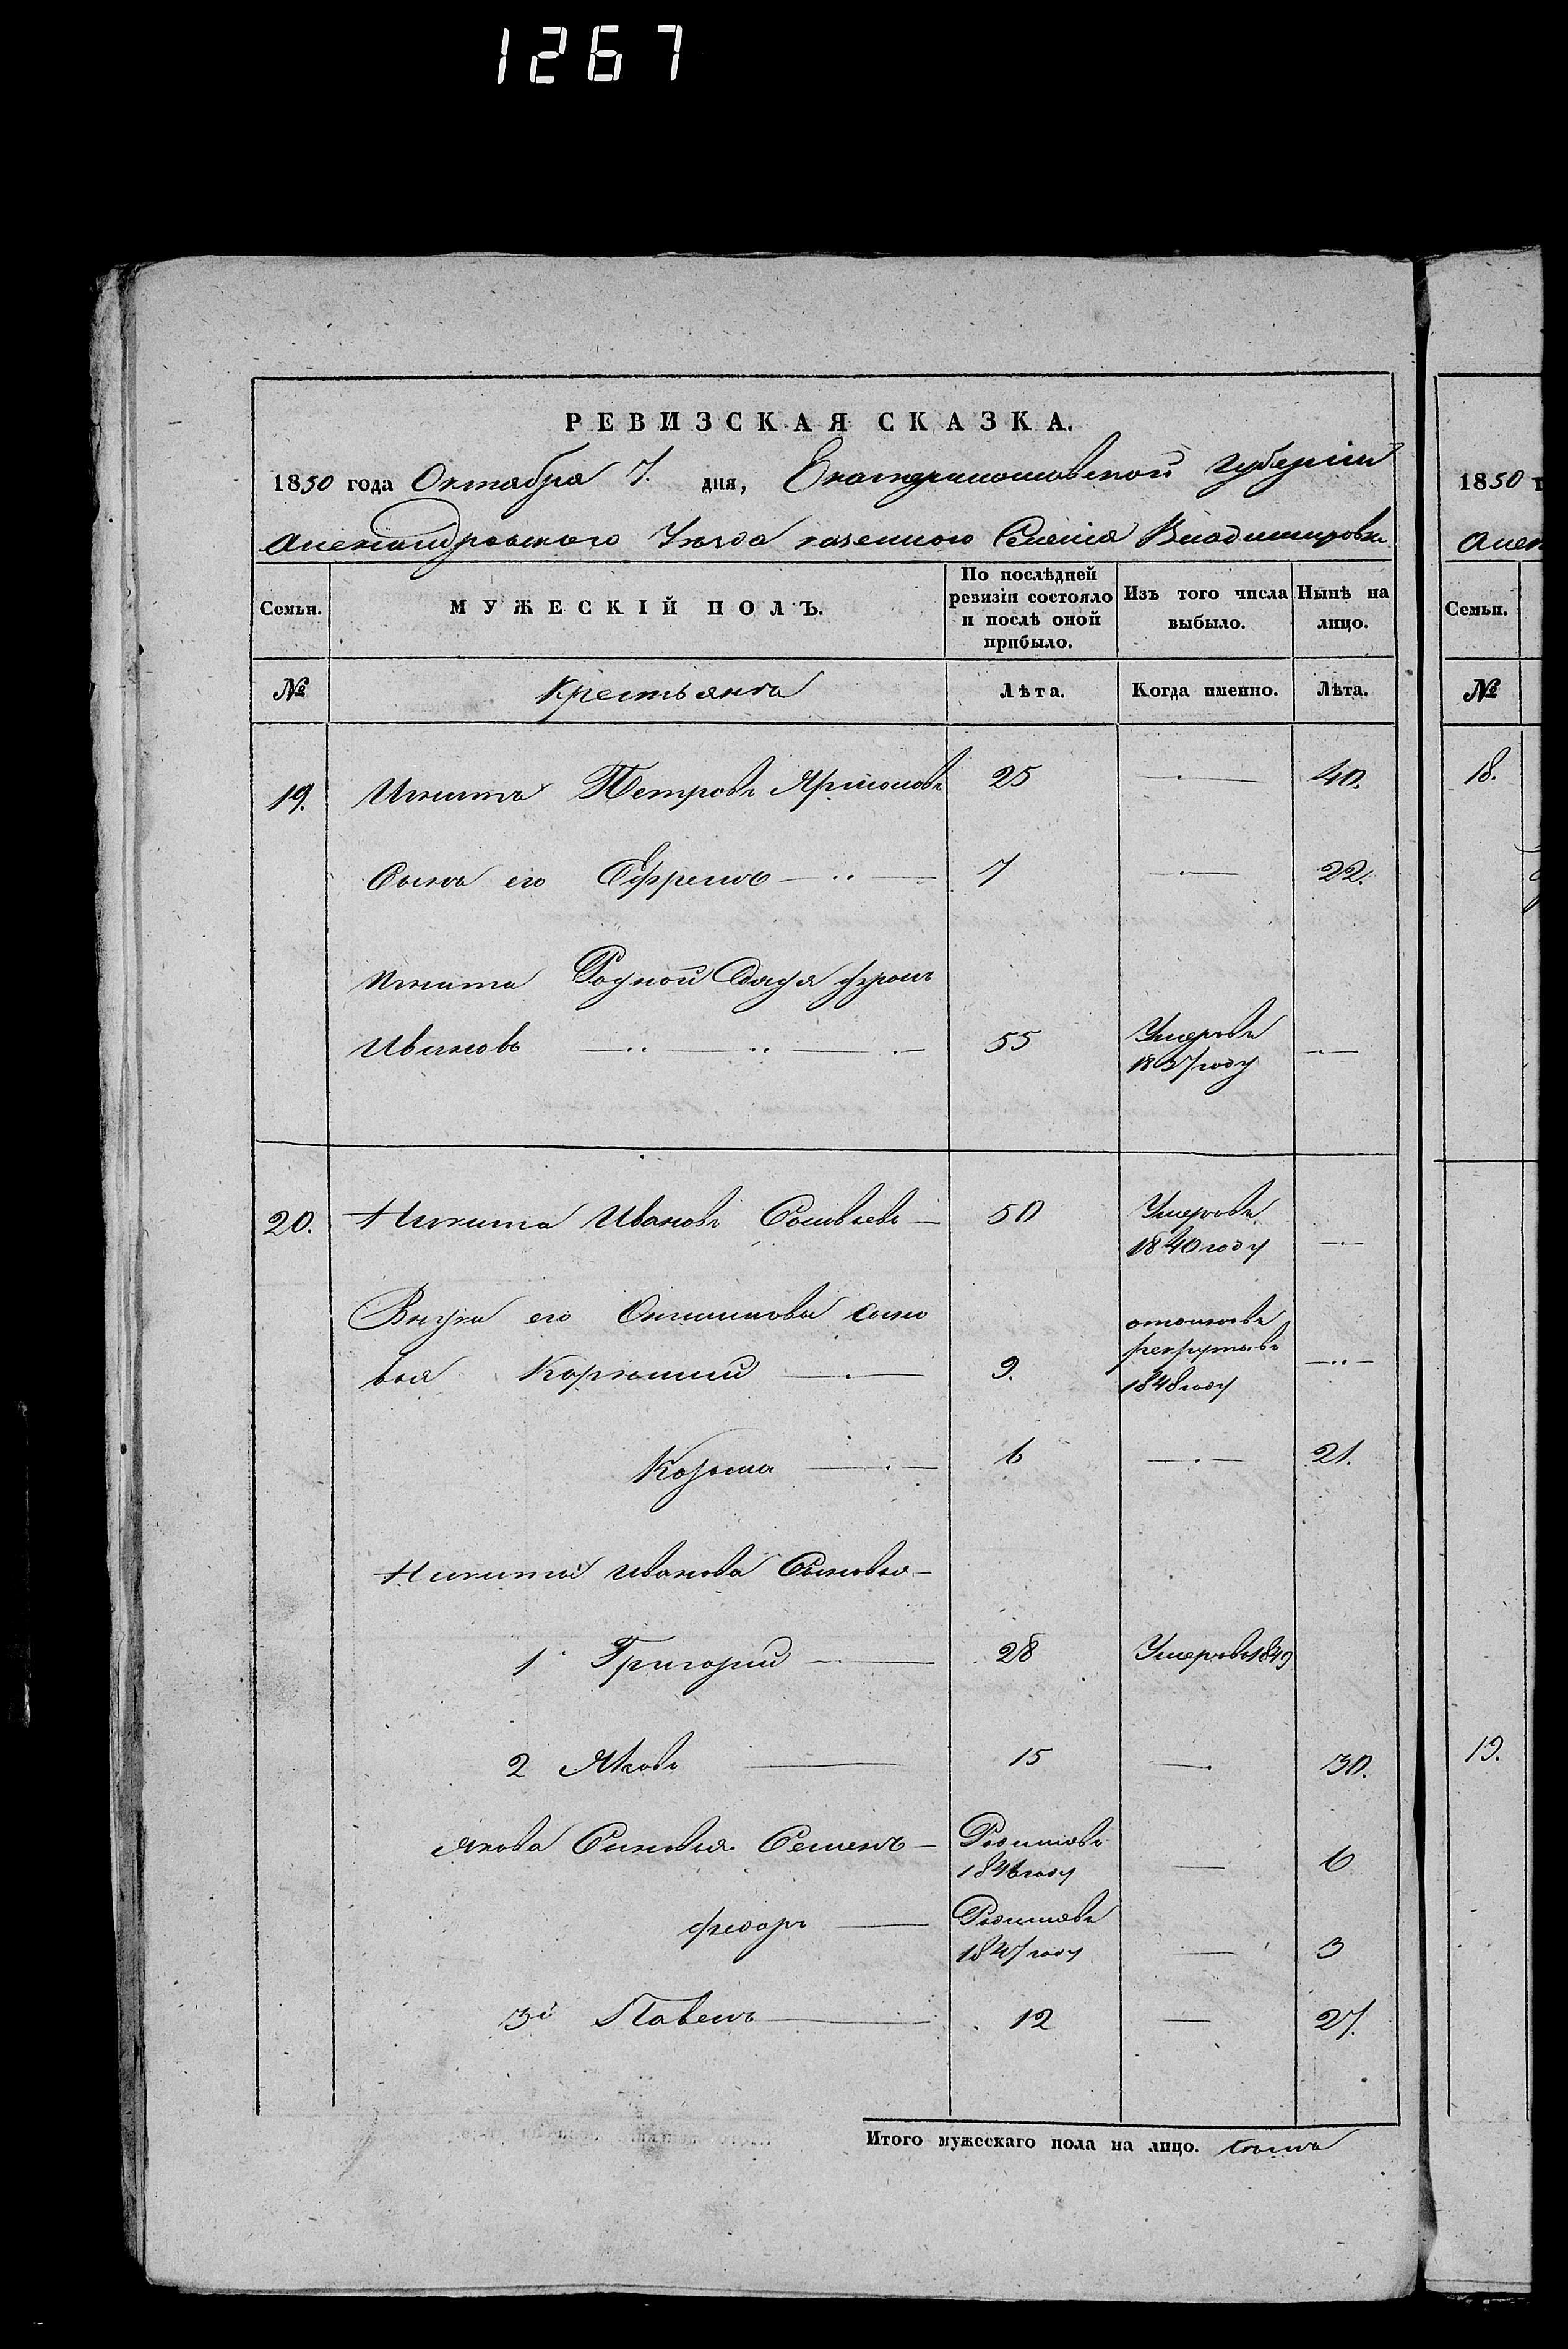 1267
РЕВИЗСКАЯ СКАЗКА.
1850 года Октября 7. дня, Екатеринославской губерніи
Александровскаго Уѣзда казенного Селенія Владимировки
Семьи. МУЖЕСКІЙ ПОЛЪ. По послѣдней ревизіи состояло и послѣ оной прибыло. Изъ того числа выбыло. Нынѣ на лицо.
№ Крестьяне Лѣта. Когда именно. Лѣта.
19. Петровъ 25 40.
Сынъ его Ефремъ 7 22.
Родной Дядя
Ивановъ 55 Умеръ въ 1837 году
20. Никита Ивановъ 50 Умеръ въ 1840 году
Внуки его сыно
вья Корнилий 9. въ рекруты въ 1848 году
Козьма 6 21.
Никиты Иванова Сыновья
1й Григорий 28 Умеръ въ 1849
2 Яковъ 15 30.
Якова Синовья Семенъ Родился въ 1846 году 6
Федоръ Родился въ 1847 году 3
3й Павелъ 12 27.
Итого мужескаго пола на лицо. семь
1850
Семьи.
№
18.
19.